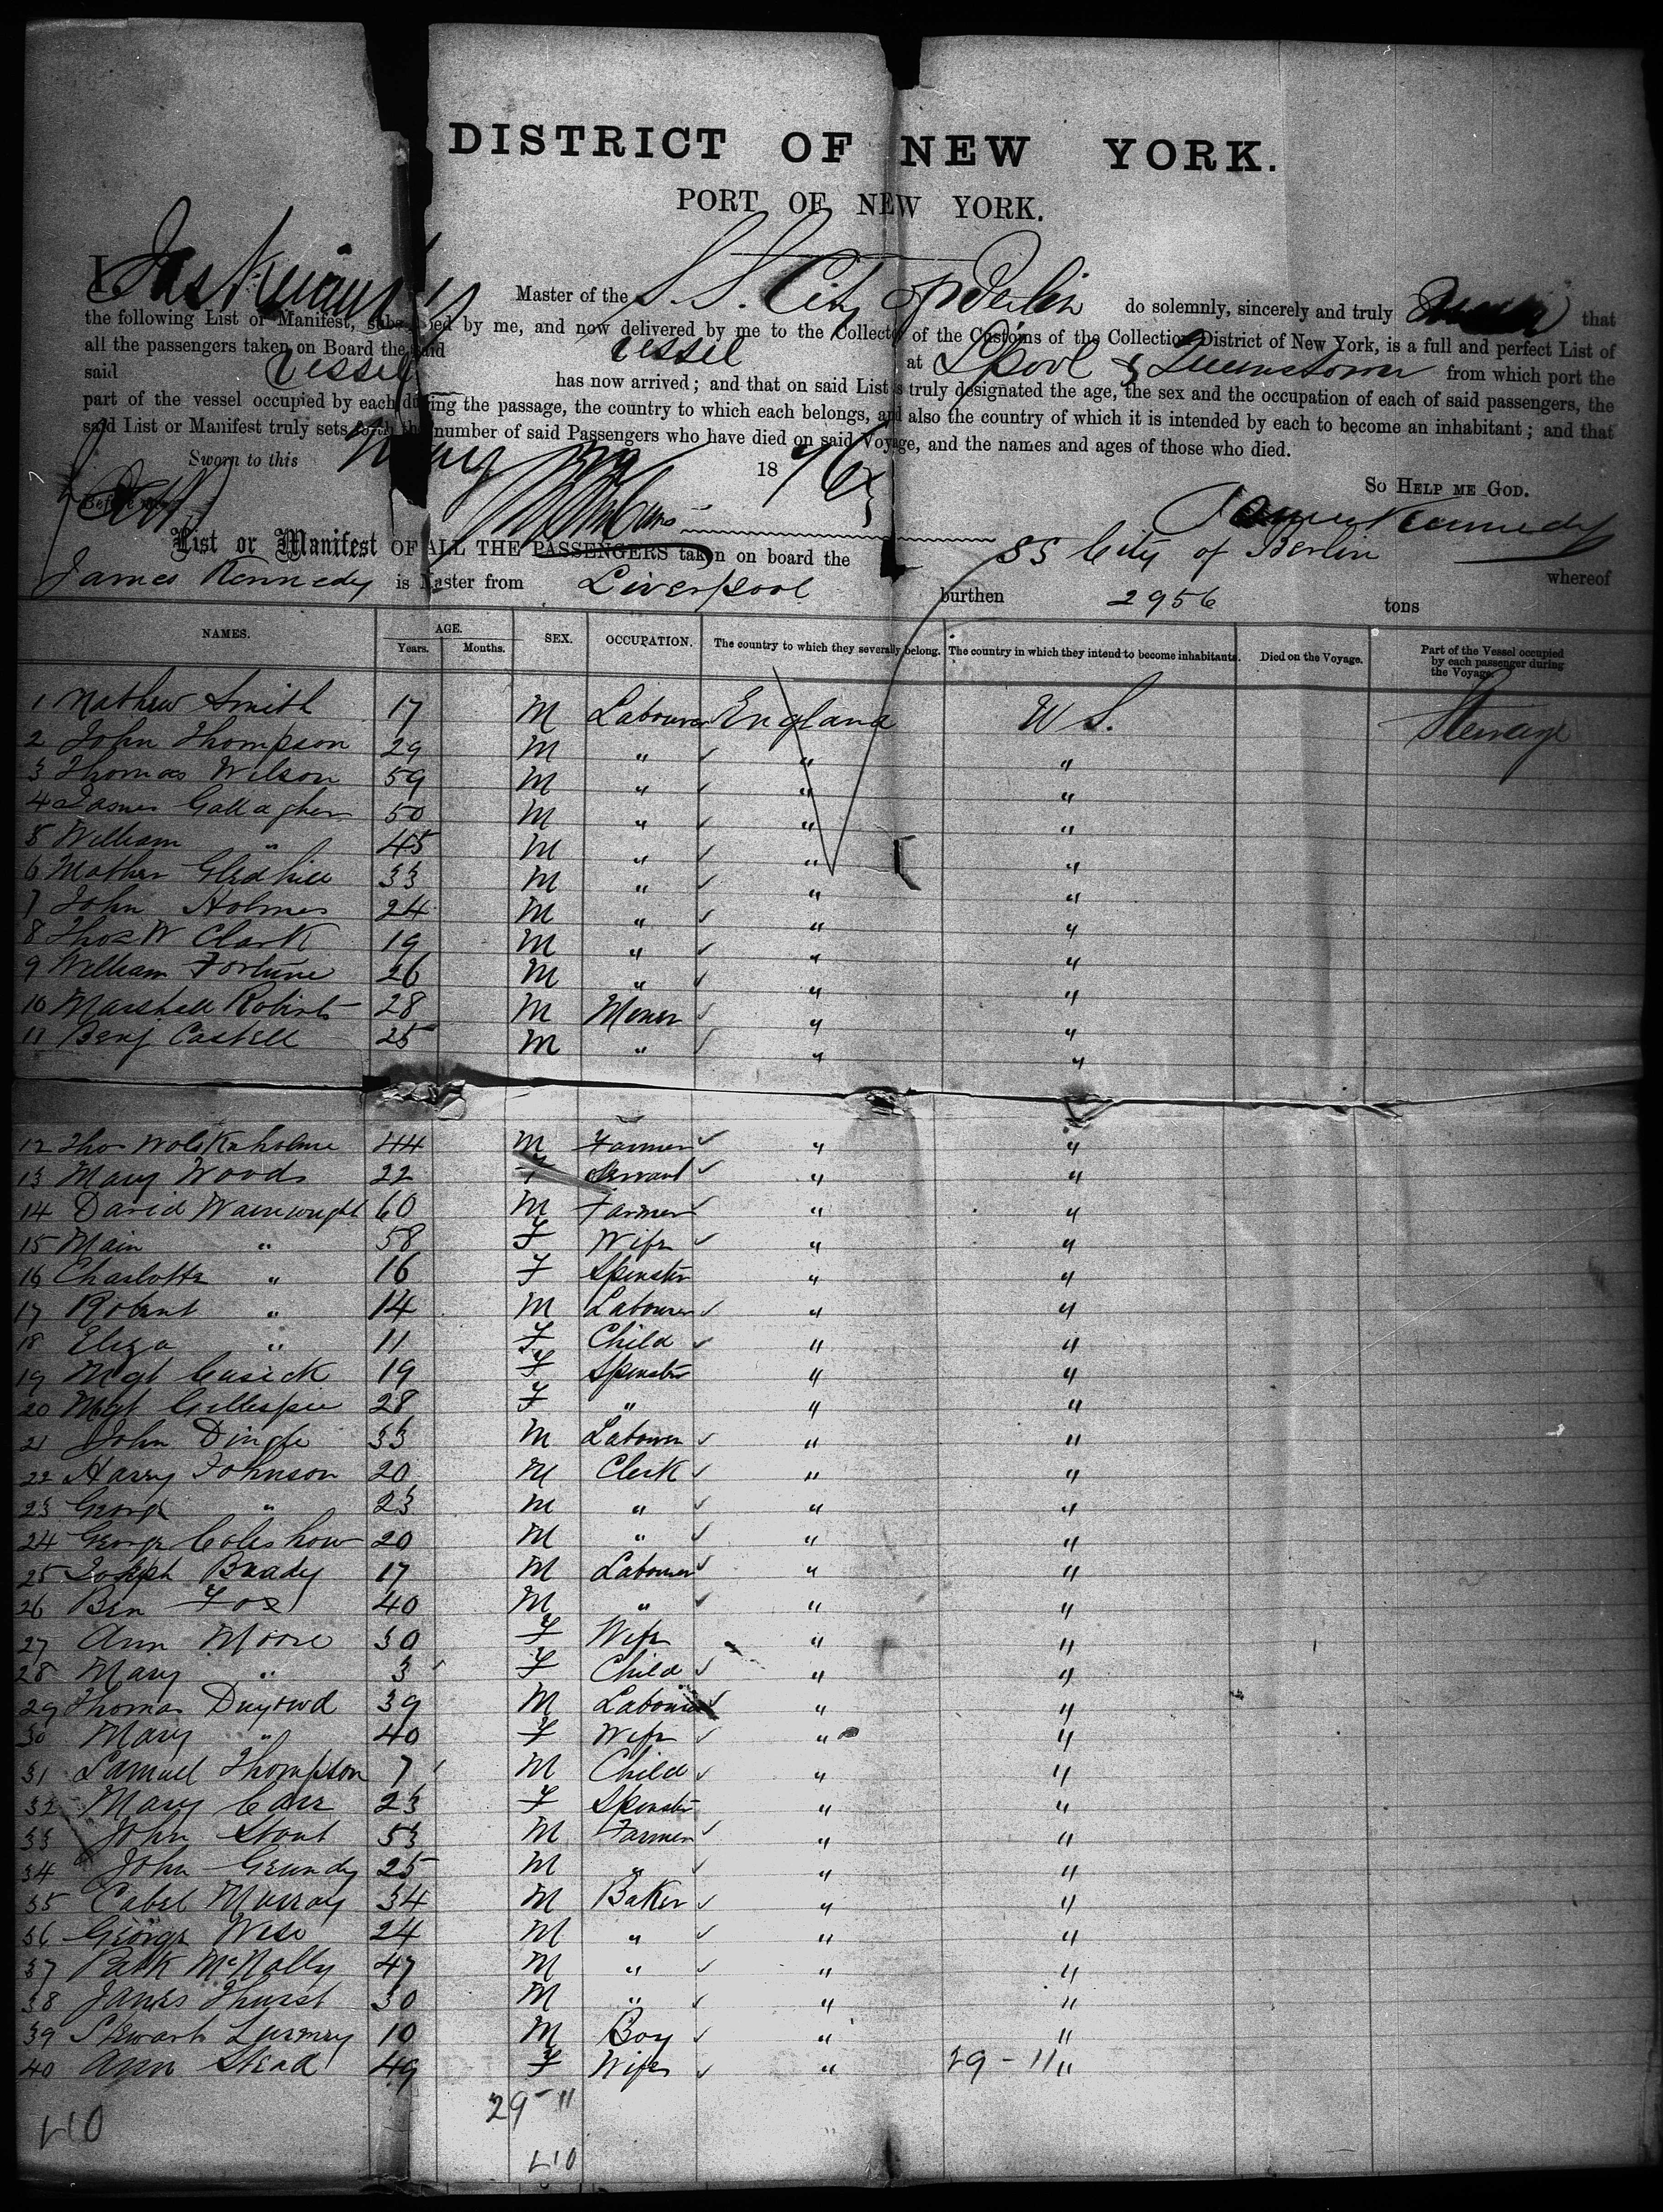 DISTRICT OF NEW YORK.
PORT OF NEW YORK.
I, Jas Kennedy Master of the S.S. City of Berlin do solemnly, sincerely and truly that
the following List or Manifest, subscribed by me, and now delivered by me to the Collector of the Customs of the Collection District of New York, is a full and perfect List of
all the passengers taken on Board the said vessel at L'pool & Queenstown from which port the
said vessel has now arrived; and that on said List is truly designated the age, the sex and the occupation of each of said passengers, the
part of the vessel occupied by each during the passage, the country to which each belongs, and also the country of which it is intended by each to become an inhabitant; and that
said List or Manifest truly sets forth the number of said Passengers who have died on said Voyage, and the names and ages of those who died.
Sworn to this May 1876
So Help me God.
Before me
James Kennedy
List or Manifest OF ALL THE PASSENGERS taken on board the SS City of Berlin whereof
James Kennedy is Master from Liverpool burthen 2956 tons
NAMES. AGE. Years. Months. SEX. OCCUPATION. The country to which they severally belong. The country in which they intend to become inhabitants. Died on the Voyage. Part of the Vessel occupied by each passenger during the Voyage.
1 Mathew Smith 17 M Labourer England U S. Steerage
2 John Thompson 29 M " " "
3 Thomas Wilson 59 M " " "
4 James Gallagher 50 M " " "
5 William " 45 M " " "
6 Mather Gledhill 33 M " " "
7 John Holmes 24 M " " "
8 Thos W Clark 19 M " " "
9 William Fortune 26 M " " "
10 Marshall Roberts 28 M Miner " "
11 Benj Castell 25 M " " "
12 Thos Wolstenholme 44 M Farmer " "
13 Mary Woods 22 F Servant " "
14 David Wainwright 60 M Farmer " "
15 " 58 F Wife " "
16 Charlotte " 16 F Spinster " "
17 Robert " 14 M Labourer " "
18 Eliza " 11 F Child " "
19 Mgt Casick 19 F Spinster " "
20 Mgt Gillespie 28 F " " "
21 John Dingle 33 M Labourer " "
22 Harry Johnson 20 M Clerk " "
23 George " 23 M " " "
24 George Coleshow 20 M " " "
25 Joseph Brady 17 M Labourer " "
26 Ben Fox 40 M " " "
27 Ann Moore 30 F Wife " "
28 Mary " 3 F Child " "
29 Thomas 39 M Labourer " "
30 Mary " 40 F Wife " "
31 Samuel Thompson 7 M Child " "
32 Mary Carr 23 F Spinster " "
33 John Stout 53 M Farmer " "
34 John Grundy 25 M " " "
35 Murray 34 M Baker " "
36 George West 24 M " " "
37 Patk McNally 47 M " " "
38 James Thurst 30 M " " "
39 Stewart 10 M Boy " "
40 Ann Stead 49 F Wife " 29 - 11 "
29 - 11
40
40